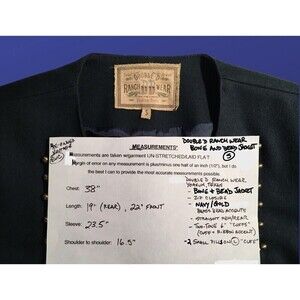 DOUBLE D
RANCH WEAR
S
DOUBLE D RANCH WEAR
BONE AND BEAD JACKET
S
MEASUREMENTS*
Measurements are taken w/garment UN-STRETCHED/LAID FLAT
Margin of error on any measurement is plus/minus one half of an inch (1/2"), but I do
the best I can to provide the most accurate measurements possible.
Chest: 38"
Length: 19" (REAR), 22" FRONT
Sleeve: 23.5"
Shoulder to shoulder: 16.5"
DOUBLE D RANCH WEAR,
YOAKUM, TEXAS
- BONE & BEAD JACKET
- NAVY/GOLD
- TWO-TONE 6" "CUFFS"
(CUFF + RIBBON ACCENT)
- 2 SMALL
"CUFF"